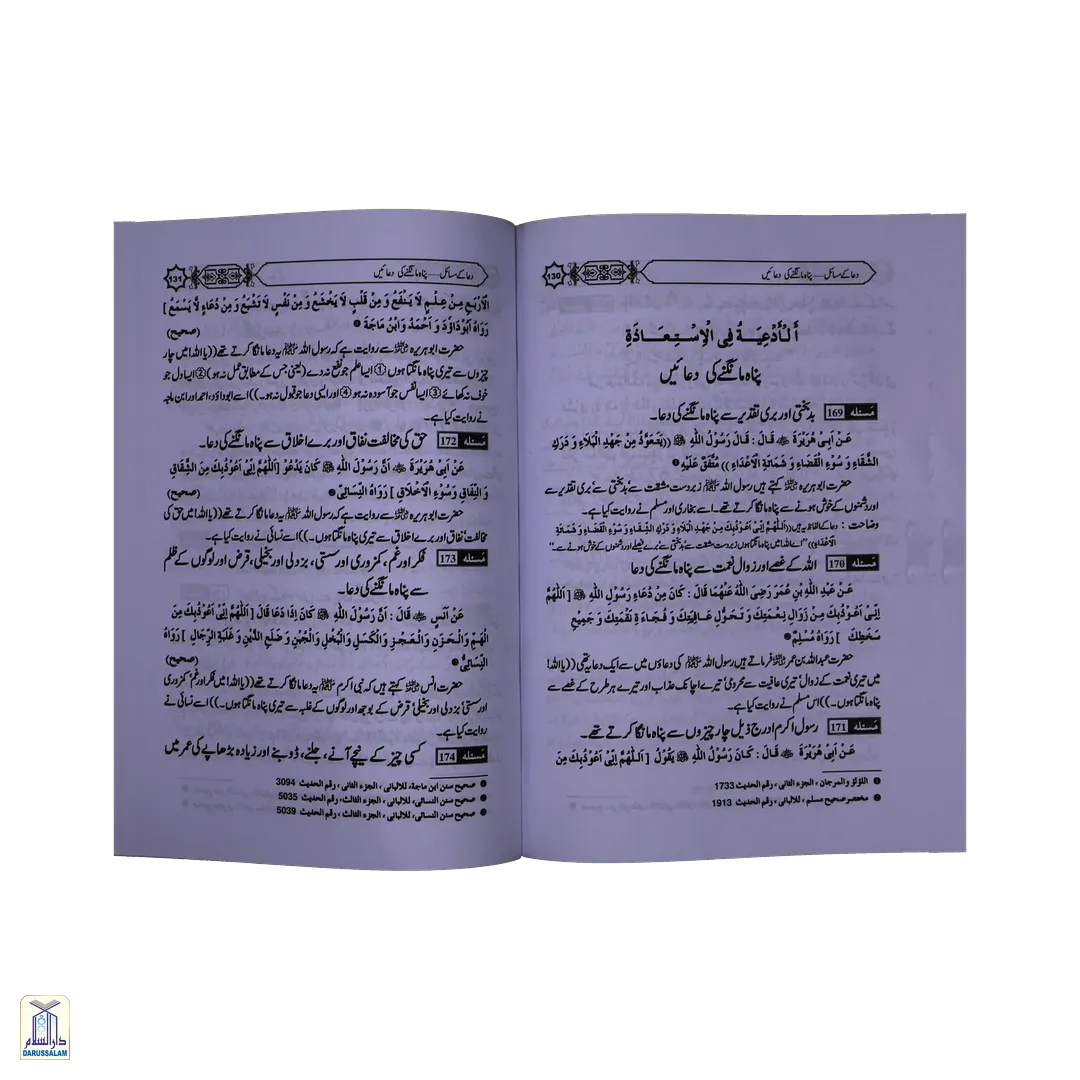 دعا کے مسائل — پناہ مانگنے کی دعائیں
130
اَلْأَدْعِيَةُ فِى الْاِسْتِعَاذَةِ
پناہ مانگنے کی دعائیں
مَسئلہ 169 بدبختی اور بری تقدیر سے پناہ مانگنے کی دعا۔
عَنْ اَبِىْ هُرَيْرَةَ ﷺ قَالَ : قَالَ رَسُوْلُ اللّٰهِ ﷺ ((يَتَعَوَّذُ مِنْ جَهْدِ الْبَلَاءِ وَ دَرَكِ
الشَّقَاءِ وَ سُوْءِ الْقَضَاءِ وَ شَمَاتَةِ الْاَعْدَاءِ )) مُتَّفَقٌ عَلَيْهِ ❶
حضرت ابو ہریرہ رضی اللہ عنہ کہتے ہیں رسول اللہ ﷺ زبردست مشقت سے، بدبختی سے، بری تقدیر سے
اور دشمنوں کے خوش ہونے سے پناہ مانگا کرتے تھے۔ اسے بخاری اور مسلم نے روایت کیا ہے۔
وضاحت : دعا کے الفاظ یہ ہیں ((اَللّٰهُمَّ اِنِّىْ اَعُوْذُبِكَ مِنْ جَهْدِ الْبَلَاءِ وَ دَرَكِ الشَّقَاءِ وَ سُوْءِ الْقَضَاءِ وَ شَمَاتَةِ
الْاَعْدَاءِ)) ''اے اللہ! میں پناہ مانگتا ہوں زبردست مشقت سے، بدبختی سے، برے فیصلے اور دشمنوں کے خوش ہونے سے۔''
مَسئلہ 170 اللہ کے غصے اور زوال نعمت سے پناہ مانگنے کی دعا
عَنْ عَبْدِ اللّٰهِ بْنِ عُمَرَ رَضِىَ اللّٰهُ عَنْهُمَا قَالَ : كَانَ مِنْ دُعَاءِ رَسُوْلِ اللّٰهِ ﷺ [اَللّٰهُمَّ
اِنِّىْ اَعُوْذُبِكَ مِنْ زَوَالِ نِعْمَتِكَ وَ تَحَوُّلِ عَافِيَتِكَ وَ فُجَاءَةِ نِقْمَتِكَ وَ جَمِيْعِ
سَخَطِكَ ] رَوَاهُ مُسْلِمٌ ❷
حضرت عبداللہ بن عمر رضی اللہ عنہما فرماتے ہیں رسول اللہ ﷺ کی دعاؤں میں سے ایک دعا یہ تھی ((یا اللہ!
میں تیری نعمت کے زوال، تیری عافیت سے محرومی، تیرے اچانک عذاب اور تیرے ہر طرح کے غصے سے
پناہ مانگتا ہوں۔)) اس مسلم نے روایت کیا ہے۔
مَسئلہ 171 رسول اکرم اور ج ذیل چار چیزوں سے پناہ مانگا کرتے تھے۔
عَنْ اَبِىْ هُرَيْرَةَ قَالَ : كَانَ رَسُوْلُ اللّٰهِ ﷺ يَقُوْلُ [اَللّٰهُمَّ اِنِّىْ اَعُوْذُبِكَ مِنَ
❶ اللؤلؤ والمرجان ، الجزء الثانى ، رقم الحديث 1733
❷ مختصر صحيح مسلم ، للالبانى ، رقم الحديث 1913
دعا کے مسائل — پناہ مانگنے کی دعائیں
131
الْاَرْبَعِ مِنْ عِلْمٍ لَا يَنْفَعُ وَ مِنْ قَلْبٍ لَا يَخْشَعُ وَ مِنْ نَفْسٍ لَا تَشْبَعُ وَ مِنْ دُعَاءٍ لَا يُسْمَعُ ]
رَوَاهُ اَبُوْدَاوُدَ وَ اَحْمَدُ وَابْنُ مَاجَةَ ❶ (صحیح)
حضرت ابو ہریرہ رضی اللہ عنہ سے روایت ہے کہ رسول اللہ ﷺ یہ دعا مانگا کرتے تھے ((یا اللہ! میں چار
چیزوں سے تیری پناہ مانگتا ہوں ① ایسا علم جو نفع نہ دے (یعنی جس کے مطابق عمل نہ ہو) ② ایسا دل جو
خوف نہ کھائے ③ ایسا نفس جو آسودہ نہ ہو ④ اور ایسی دعا جو قبول نہ ہو۔)) اسے ابوداؤد، احمد اور ابن ماجہ
نے روایت کیا ہے۔
مَسئلہ 172 حق کی مخالفت، نفاق اور برے اخلاق سے پناہ مانگنے کی دعا۔
عَنْ اَبِىْ هُرَيْرَةَ اَنَّ رَسُوْلَ اللّٰهِ ﷺ كَانَ يَدْعُوْ [اَللّٰهُمَّ اِنِّىْ اَعُوْذُبِكَ مِنَ الشِّقَاقِ
وَ النِّفَاقِ وَ سُوْءِ الْاَخْلَاقِ ] رَوَاهُ النِّسَائِىُّ ❷ (صحیح)
حضرت ابو ہریرہ رضی اللہ عنہ سے روایت ہے کہ رسول اللہ ﷺ یہ دعا مانگا کرتے تھے ((یا اللہ! میں حق کی
مخالفت، نفاق اور برے اخلاق سے تیری پناہ مانگتا ہوں۔)) اسے نسائی نے روایت کیا ہے۔
مَسئلہ 173 فکر اور غم، کمزوری اور سستی، بزدلی اور بخیلی، قرض اور لوگوں کے ظلم
سے پناہ مانگنے کی دعا۔
عَنْ اَنَسٍ قَالَ : اَنَّ رَسُوْلَ اللّٰهِ ﷺ كَانَ اِذَا دَعَا قَالَ [اَللّٰهُمَّ اِنِّىْ اَعُوْذُبِكَ مِنَ
الْهَمِّ وَ الْحَزَنِ وَ الْعَجْزِ وَ الْكَسَلِ وَ الْبُخْلِ وَ الْجُبْنِ وَ ضَلَعِ الدَّيْنِ وَ غَلَبَةِ الرِّجَالِ ] رَوَاهُ
النِّسَائِىُّ ❸ (صحیح)
حضرت انس رضی اللہ عنہ کہتے ہیں کہ نبی اکرم ﷺ یہ دعا مانگا کرتے تھے ((یا اللہ! میں فکر اور غم، کمزوری
اور سستی، بزدلی اور بخیلی، قرض کے بوجھ اور لوگوں کے غلبہ سے تیری پناہ مانگتا ہوں۔)) اسے نسائی نے
روایت کیا ہے۔
مَسئلہ 174 کسی چیز کے نیچے آنے، جلنے، ڈوبنے اور زیادہ بڑھاپے کی عمر میں
❶ صحيح سنن ابن ماجة، للالبانى ، الجزء الثانى ، رقم الحديث 3094
❷ صحيح سنن النسائى، للالبانى ، الجزء الثالث ، رقم الحديث 5035
❸ صحيح سنن النسائى، للالبانى ، الجزء الثالث ، رقم الحديث 5039
دارالسلام
DARUSSALAM